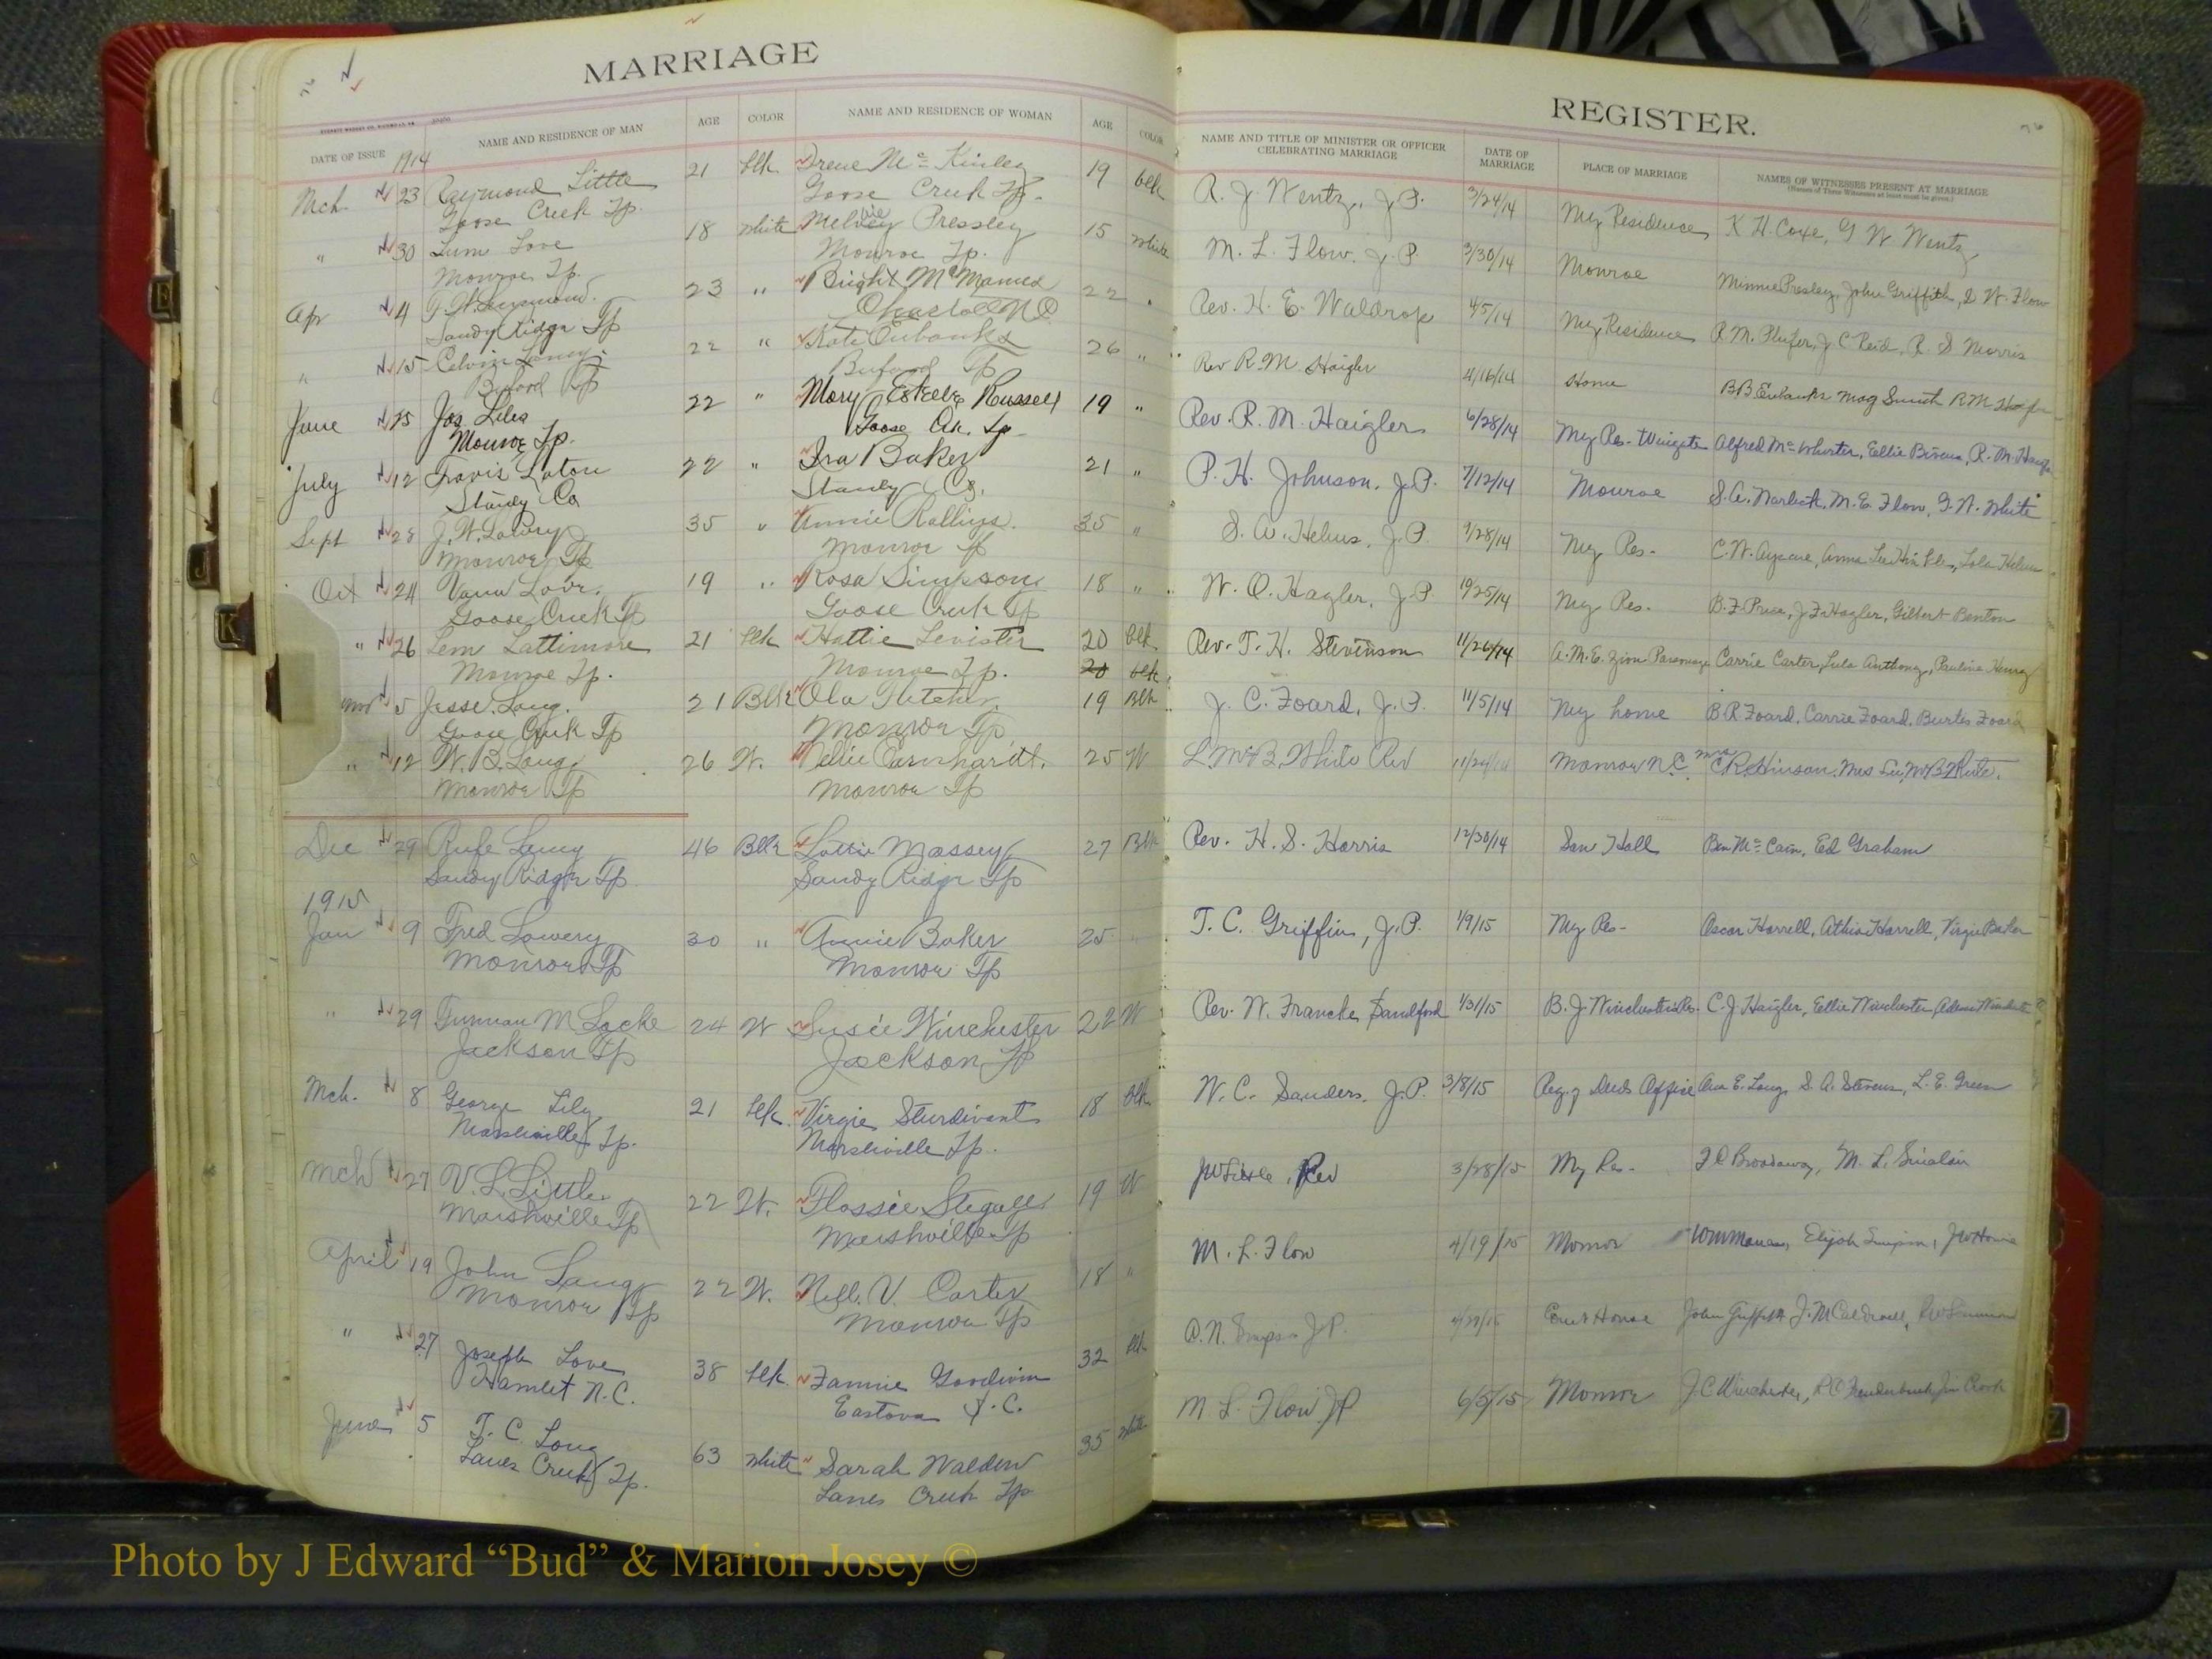 MARRIAGE
DATE OF ISSUE 1914 NAME AND RESIDENCE OF MAN AGE COLOR NAME AND RESIDENCE OF WOMAN AGE COLOR
Mch 23 Raymond Little 21 blk Kinley 19 blk
Goose Creek Tp. Goose Creek Tp.
" 30 Lum Love 18 white Pressley 15 white
Monroe Tp. Monroe Tp.
Apr 4 23 " Bright 22 "
Sandy Ridge Tp
" 15 22 " Kate Eubanks 26 "
Buford Tp Buford Tp
June 25 Jos. Liles 22 " Mary Estelle Russell 19 "
Monroe Tp. Goose Ck. Tp
July 12 Travis Laton 22 " Ira Baker 21 "
Stanly Co Stanly Co.
Sept 28 J. W. Lowery 35 " Annie Rollins 35 "
Monroe Tp Monroe Tp
Oct 24 Vann Love 19 " Rosa Simpson 18 "
Goose Creek Tp Goose Creek Tp
" 26 Lem Lattimore 21 blk Hattie Levister 20 blk
Monroe Tp. Monroe Tp. 20 blk
5 Jesse Long 21 Blk Ola 19 Blk
Goose Creek Tp Monroe Tp
" 12 W. B. Long 26 W. Nellie Earnhardt. 25 W
Monroe Tp Monroe Tp
Dec 29 Rufe 46 Blk Lottie Massey 27 Blk
Sandy Ridge Tp Sandy Ridge Tp
1915
Jan 9 Fred Lowery 30 " Annie Baker 25 "
Monroe Tp Monroe Tp
" 29 M Locke 24 W Susie Winchester 22 W
Jackson Tp Jackson Tp
Mch. 8 George Lily 21 blk. Virgie Sturdivant 18 blk
Marshville Tp. Marshville Tp.
Mch 27 V. L. Little 22 W. Flossie Stegall 19 W
Marshville Tp Marshville Tp
April 19 John Long 22 W. Nell. V. Carter 18 "
Monroe Tp Monroe Tp
" 27 Joseph Love 38 blk. Fannie Goodwin 32 blk
Hamlet N.C. S.C.
June 5 T. C. Long 63 white Sarah Walden 35 white
Lanes Creek Tp. Lanes Creek Tp
REGISTER.
NAME AND TITLE OF MINISTER OR OFFICER CELEBRATING MARRIAGE DATE OF MARRIAGE PLACE OF MARRIAGE NAMES OF WITNESSES PRESENT AT MARRIAGE
(Names of Three Witnesses at least must be given.)
R. J. Wentz, J.P. 3/24/14 My Residence K. H. Coxe, G W Wentz
M. L. Flow, J.P. 3/30/14 Monroe Minnie Presley, John Griffith, W. Flow
Rev. H. E. Waldrop 4/5/14 My Residence R. M. Plyler, J C Reid, R. S. Morris
Rev R. M Haigler 4/16/14 Home B B Eubanks Mag Smith R M
Rev. R. M. Haigler 6/28/14 My Res- Wingate Alfred McWhorter, Ellie Bivens, R. M.
P. H. Johnson, J.P. 7/12/14 Monroe S. A. M. E. Flow, White
S. A. Helms, J.P. 9/28/14 My Res- C. W. Anna Lee Lola Helms
W. O. Hagler, J.P. 10/25/14 My Res. B. F. Price, J F Hagler, Gilbert Benton
Rev. T. H. Stevenson 11/26/14 A.M.E. Zion Parsonage Carrie Carter, Lula Anthony, Pauline Henry
J. C. Foard, J.P. 11/5/14 My home B. R Foard, Carrie Foard, Burtis Foard
White Rev Monroe N.C. Hinson, Mrs
Rev. H. S. Harris 12/30/14 Sam Hall Ben McCain, Ed Graham
T. C. Griffin, J.P. 1/9/15 My Res- Oscar Harrell, Harrell, Virgie Baker
Rev. W. Francke Sandford 1/31/15 B. J. Winchester Res. C. J. Haigler, Ellie Winchester
W. C. Sanders, J.P. 3/8/15 Reg. of Deeds Office E. Long, S. A. Stevens, L. E. Green
J W Little, Rev 3/28/15 My Res- Broadaway, M. L. Sinclair
M. L. Flow 4/19/15 Monroe Elijah Simpson, J W
Simpson J.P. Court House John Griffith J. M Caldwell
M. L. Flow JP 6/5/15 Monroe J. C Winchester, Jim Crook
Photo by J Edward “Bud” & Marion Josey ©
E
J
K